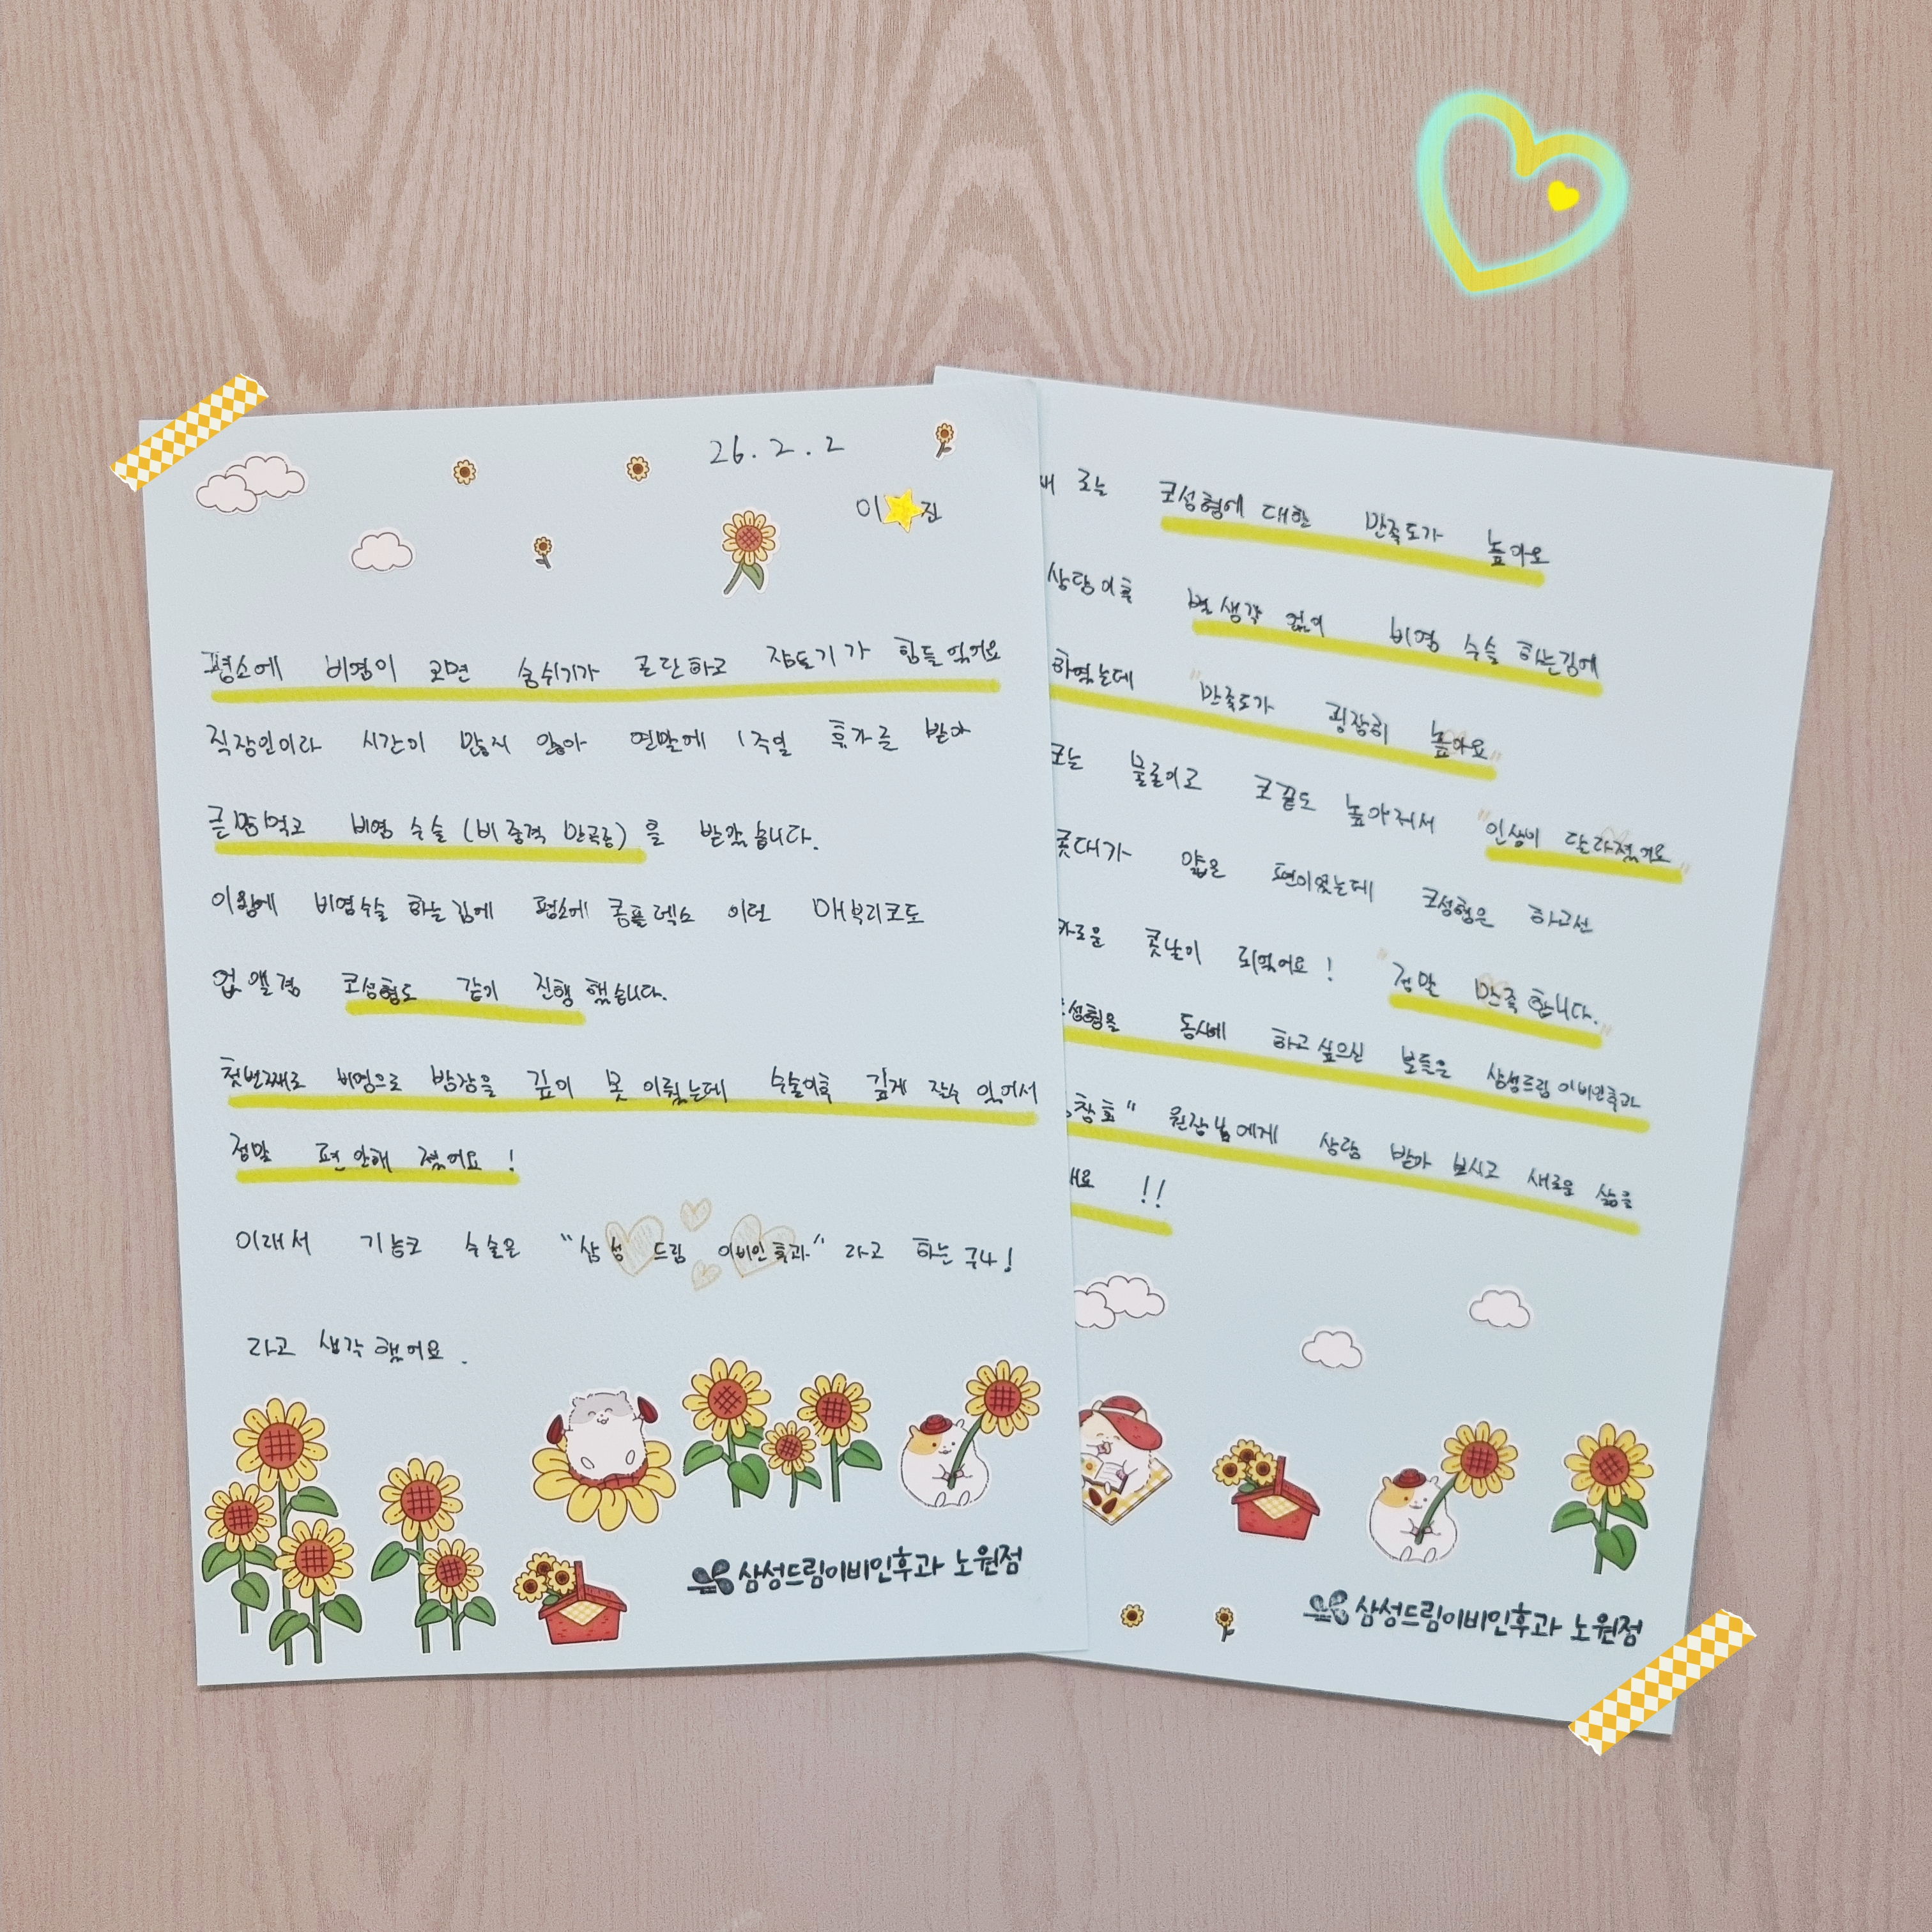 26. 2. 2
이 진
평소에 비염이 오면 숨쉬기가 곤란하고 자도기가 힘들었어요
직장인이라 시간이 많지 않아 연말에 1주일 휴가를 받아
큰맘먹고 비염 수술 (비중격 만곡증) 을 받았습니다.
이왕에 비염수술 하는김에 평소에 콤플렉스 이던 매부리코도
업앨겸 코성형도 같이 진행 했습니다.
첫번째로 비염으로 밤잠을 깊이 못 이뤘는데 수술이후 깊게 잘수 있어서
정말 편안해 졌어요 !
이래서 기능코 수술은 "삼성 드림 이비인후과" 라고 하는구나!
라고 생각했어요.
삼성드림이비인후과 노원점
째로는 코성형에 대한 만족도가 높아요
상담이후 별생각 없이 비염 수술 하는김에
하였는데 "만족도가 굉장히 높아요"
코는 물론이고 코끝도 높아져서 "인생이 달라졌어요"
콧대가 얇은 편이었는데 코성형은 하고선
콧날이 되었어요! "정말 만족합니다."
성형을 동시에 하고싶으신 분들은 삼성드림이비인후과
창호" 원장님에게 상담 받아보시고 새로운 삶을
!!
삼성드림이비인후과 노원점